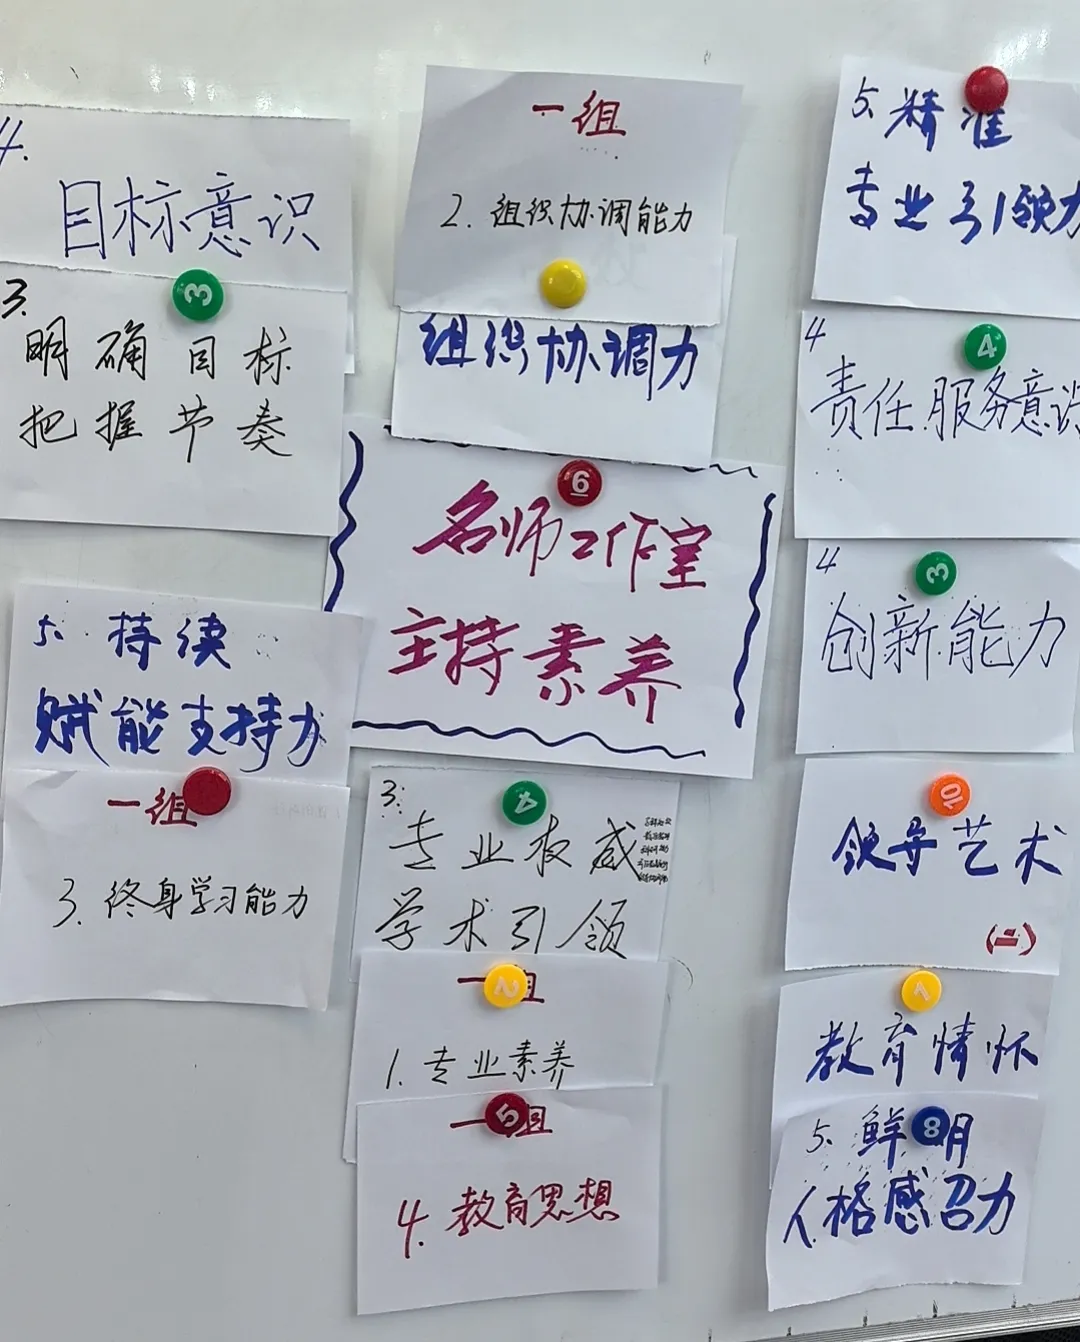 4.
目标意识
3.
明确目标
把握节奏
5. 持续
赋能支持力
一组
3. 终身学习能力
一组
2. 组织协调能力
组织协调力
6
名师工作室
主持素养
3.
4
专业权威
学术引领
一组
2
1. 专业素养
一组
5
4. 教育思想
5. 精准
专业引领力
4
4
责任服务意识
4
3
创新能力
10
领导艺术
(二)
1
教育情怀
5. 鲜明
8
人格感召力